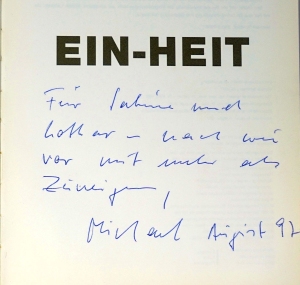 EIN-HEIT
Für Sabine und
Lothar – nach wie
vor mit mehr als
Zuneigung,
Michael August 97